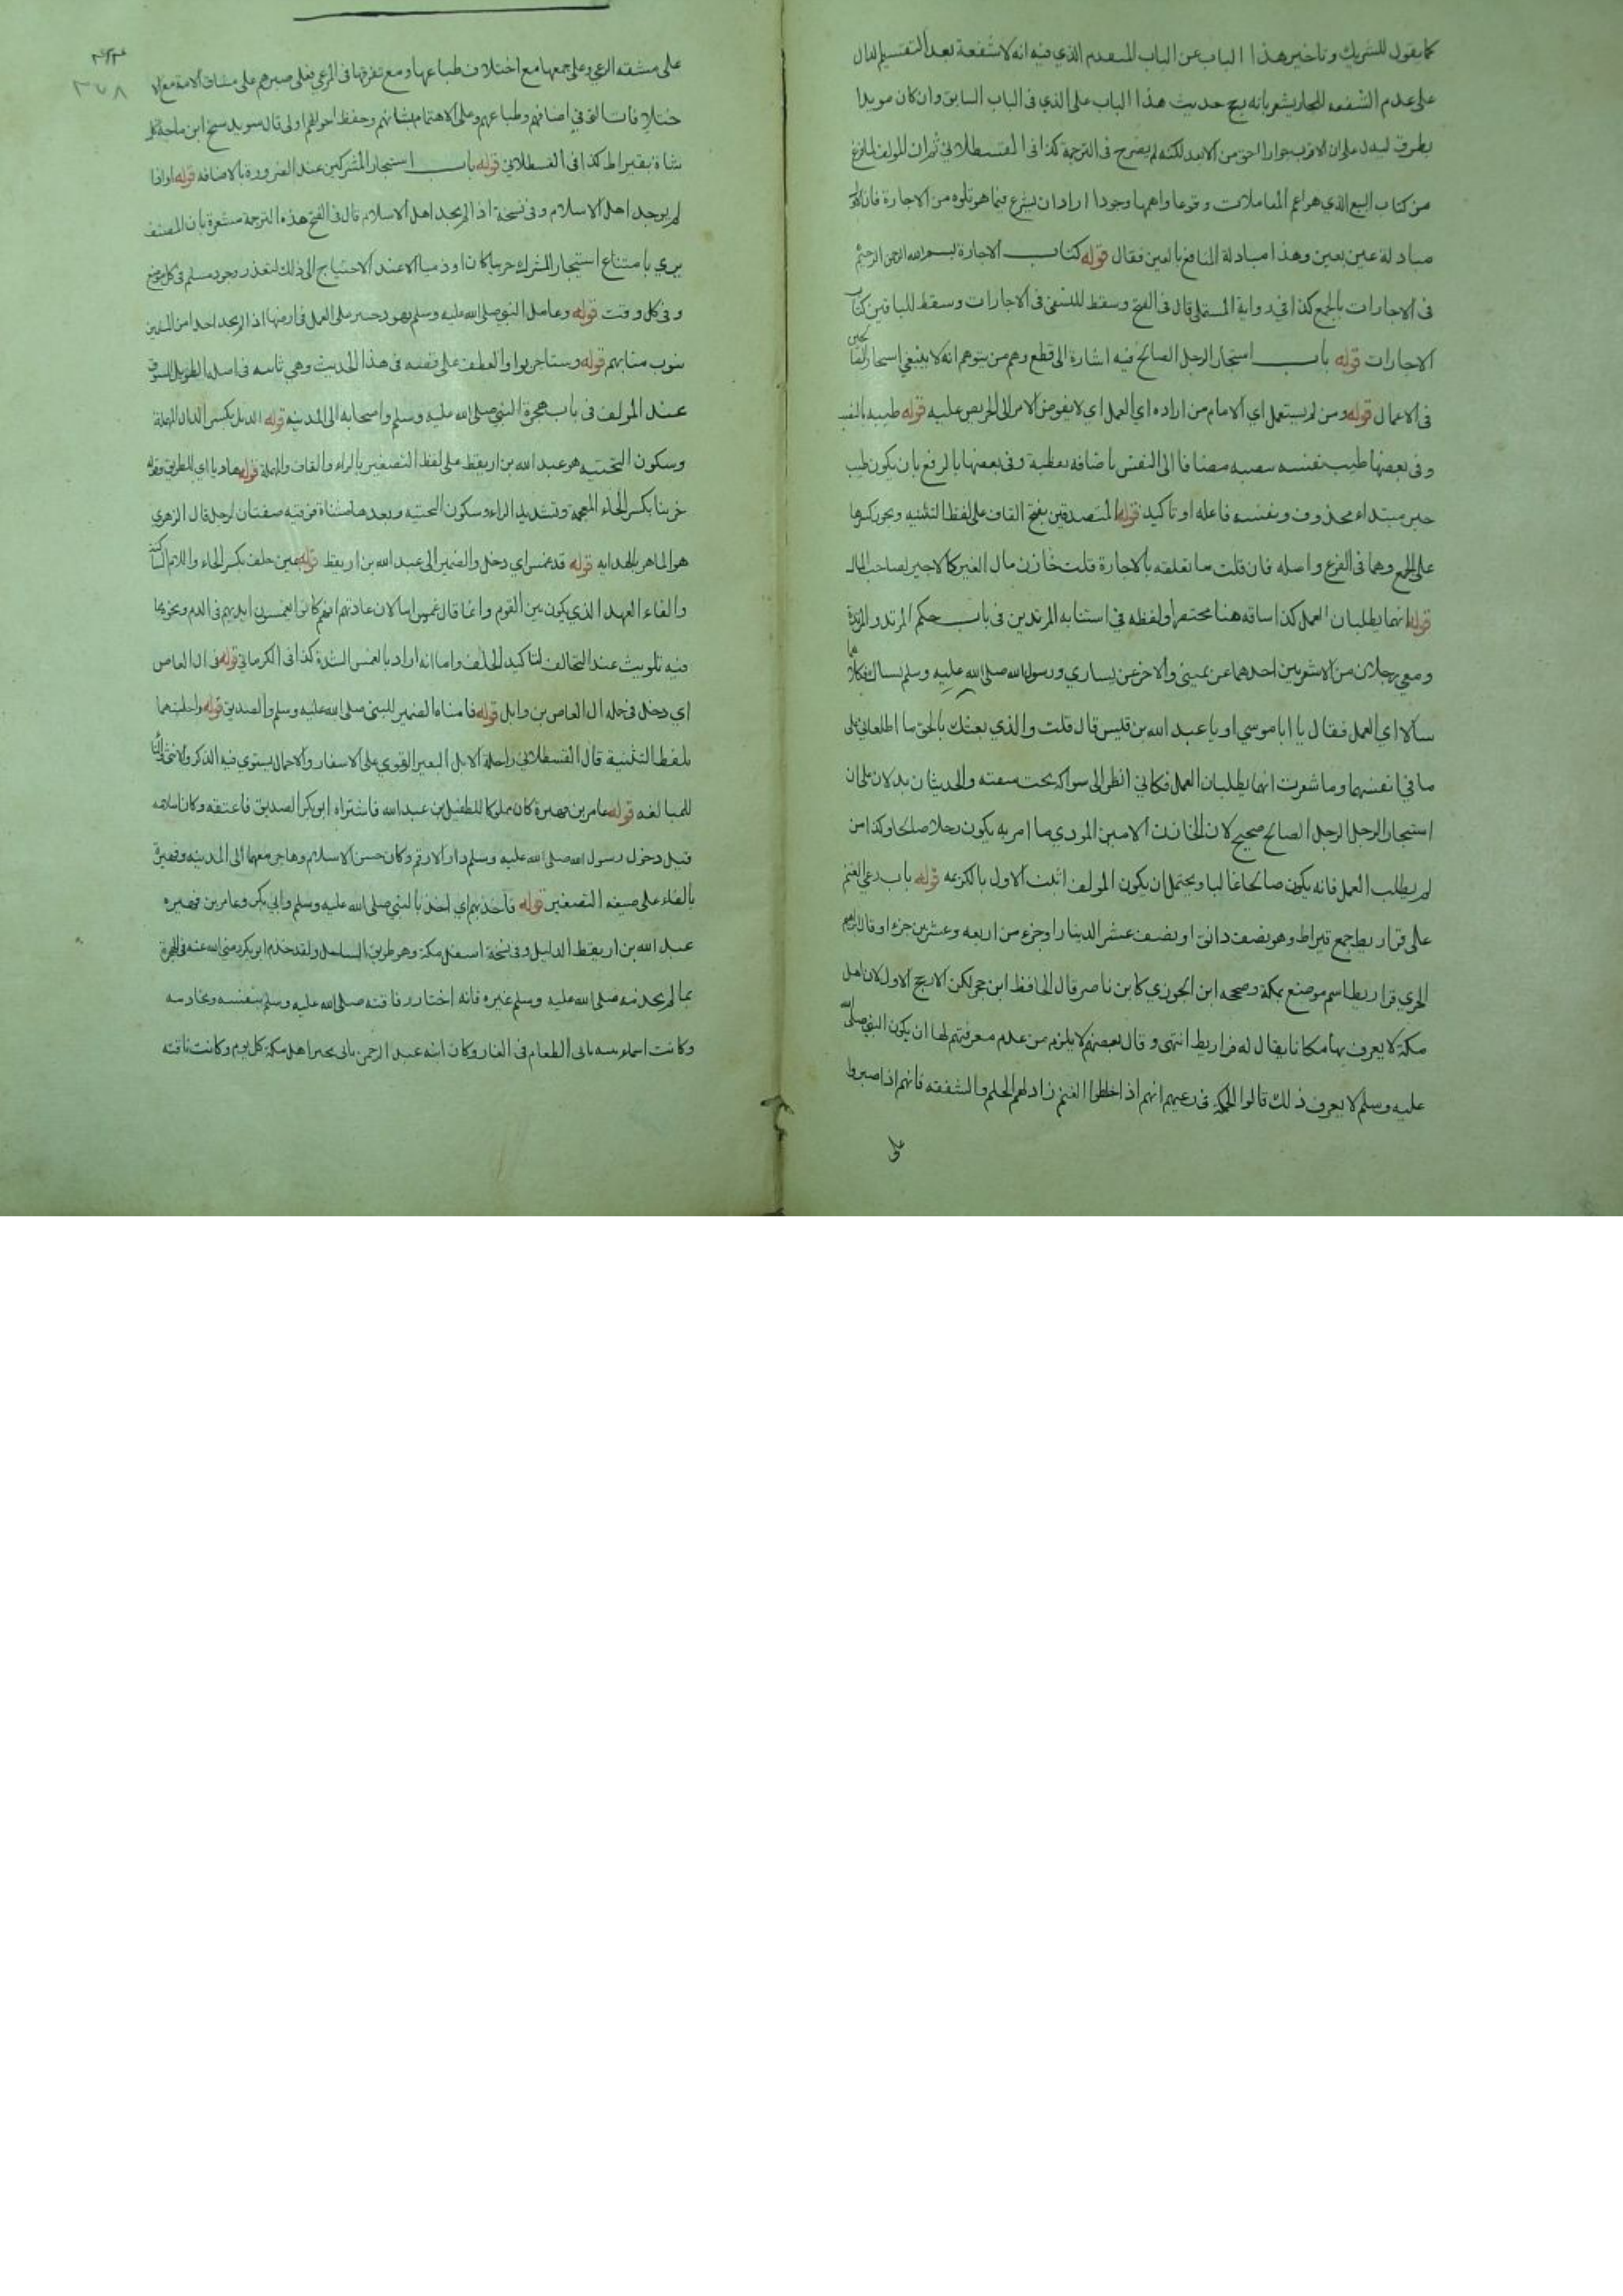 كما يقول للشريك وتاخير هذا الباب عن الباب المتقدم الذي فيه انه لا شفعة بعد التقسيم الدال
على عدم الشفعه للجار يشعر بانه يرجح حديث هذا الباب على الذي في الباب السابق وان كان مويدا
بطرق ليدل على ان الاقرب جوارا احق من الابعد لكنه لم يصرح في الترجمة كذا في القسطلاني ثم ان المولف لما فرغ
من كتاب البيع الذي هو اعم المعاملات وقوعا واهمها وجودا اراد ان يشرع فيما هو تلوه من الاجارة فان
مبادلة عين بعين وهذا مبادلة المنافع بالعين فقال قوله كتاب الاجارة بسم الله الرحمن الرحيم
في الاجارات بالجمع كذا في رواية المستملي قال في الفتح وسقط للنسفي في الاجارات وسقط للباقين كتاب
الاجارات قوله باب استيجار الرجل الصالح فيه اشارة الى قطع وهم من يتوهم انه لا ينبغي استيجار الصالحين
في الاعمال قوله ومن لم يستعمل اي الامام من اراده اي العمل اي لا يفوض الامر الى الحريص عليه قوله طيبه بالنصب
وفي بعضها طيب نفسه مضافا الى النفس باضافه لفظية وفي بعضها بالرفع بان يكون طيب
خبر مبتداء محذوف ونفسه فاعله او تاكيد قوله المتصدقين بفتح القاف على لفظ التثنيه ويجوز كسرها
على الجمع وهما في الفرع واصله فان قلت ما تعلقه بالاجارة قلت خازن مال الغير كالاجير لصاحب المال
قوله انهما يطلبان العمل كذا ساقه هنا مختصرا ولفظه في استتابه المرتدين في باب حكم المرتد والمرتدة
ومعي رجلان من الاشعريين احدهما عن يميني والاخر عن يساري ورسول الله صلى الله عليه وسلم يستاك فكلاهما
سالا اي العمل فقال يا ابا موسي او يا عبد الله بن قيس قال قلت والذي بعثك بالحق ما اطلعاني على
ما في انفسهما وما شعرت انهما يطلبان العمل فكاني انظر الى سواكه تحت شفته والحديثان يدلان على ان
استيجار الرجل الرجل الصالح صحيح لان الخازن الامين المودي ما امر به يكون رجلا صالحا وكذا من
لم يطلب العمل فانه يكون صالحا غالبا ويحتمل ان يكون المولف اثبت الاول بالكزعه قوله باب رعي الغنم
على قراريط جمع قيراط وهو نصف دانق او نصف عشر الدينار او جزء من اربعه وعشرين جزء او قال ابراهيم
الحربي قراريط اسم موضع بمكة وصححه ابن الجوزي كابن ناصر قال الحافظ ابن حجر لكن الارجح الاول لان اهل
مكة لا يعرف بها مكانا يقال له قراريط انتهى وقال بعضهم لا يلزم من عدم معرفتهم لها ان يكون النبي صلى الله
عليه وسلم لا يعرف ذلك قالوا الحكمة في رعيهم انهم اذا خالطوا الغنم زاد لهم الحلم والشفقه فانهم اذا صبروا
على
٣٥٨
على مشقه الرعي وعلى جمعها مع اختلاف طباعها ومع تفرقها في المرعي فعلى صبرهم على مشاق الامة مع الا
ختلافات في اصنافهم وطباعهم وعلى الاهتمام بشانهم وحفظ احوالهم اولى قال سويد شيخ ابن ماجة كل
شاة بقيراط كذا في القسطلاني قوله باب استيجار المشركين عند الضرورة بالاضافه قوله او اذا
لم يوجد اهل الاسلام وفي نسخة اذا لم يجد اهل الاسلام قال في الفتح هذه الترجمة مشعرة بان المصنف
يري بامتناع استيجار المشرك حربيا كان او ذميا الا عند الاحتياج الى ذلك لتعذر وجود مسلم في كل موضع
وفي كل وقت قوله وعامل النبي صلى الله عليه وسلم يهود خيبر على العمل في ارضها اذا لم يجد احدا من المسلمين
ينوب منابهم قوله وستاجر بواو العطف على قصه في هذا الحديث وهي ثابته في اصله الطويل المسوق
عند المولف في باب هجرة النبي صلى الله عليه وسلم واصحابه الى المدينه قوله الديل بكسر الدال المهملة
وسكون التحتيه هو عبد الله بن اريقط على لفظ التصغير بالراء والقاف والمهملة قوله هاديا اي للطريق وقوله
خريتا بكسر الخاء المعجمة وتشديد الراء وسكون التحتيه وبعدها مثناة فوقيه صفتان لرجل قال الزهري
هو الماهر بالهدايه قوله قد غمس اي دخل والضمير الى عبد الله بن اريقط قوله يمين حلف بكسر الحاء واللام الساكنة
والفاء العهد الذي يكون بين القوم وانما قال غمس اما لان عادتهم انهم كانوا يغمسون ايديهم في الدم ونحوه مما
فيه تلويث عند التحالف لتاكيد الحلف واما انه اراد بالغمس الشدة كذا في الكرماني قوله في ال العاص
اي دخل في حلف ال العاص بن وايل قوله فامناه الضمير للنبي صلى الله عليه وسلم والصديق قوله راحلتيهما
بلفظ التثنية قال القسطلاني راحلة الابل البعير القوي على الاسفار والاحمال يستوي فيه الذكر والانثى والتاء
للمبالغه قوله عامر بن فهيرة كان مملوكا للطفيل بن عبد الله فاشتراه ابو بكر الصديق فاعتقه وكان اسلامه
قبل دخول رسول الله صلى الله عليه وسلم دار الارقم وكان حسن الاسلام وهاجر معهما الى المدينه وفهيرة
بالفاء على صيغه التصغير قوله فاخذ بهم اي اخذ بالنبي صلى الله عليه وسلم وابي بكر وعامر بن فهيره
عبد الله بن اريقط الدليل وفي نسخة اسفل مكة وهو طريق الساحل ولقد خدم ابو بكر رضي الله عنه في الهجرة
بما لم يخدمه صلى الله عليه وسلم غيره فانه اختار رفاقته صلى الله عليه وسلم بنفسه
وكانت اسماء بنته الطعام في الغار وكان ابنه عبد الرحمن ياتي بخبر اهل مكة كل يوم وكانت ناقته